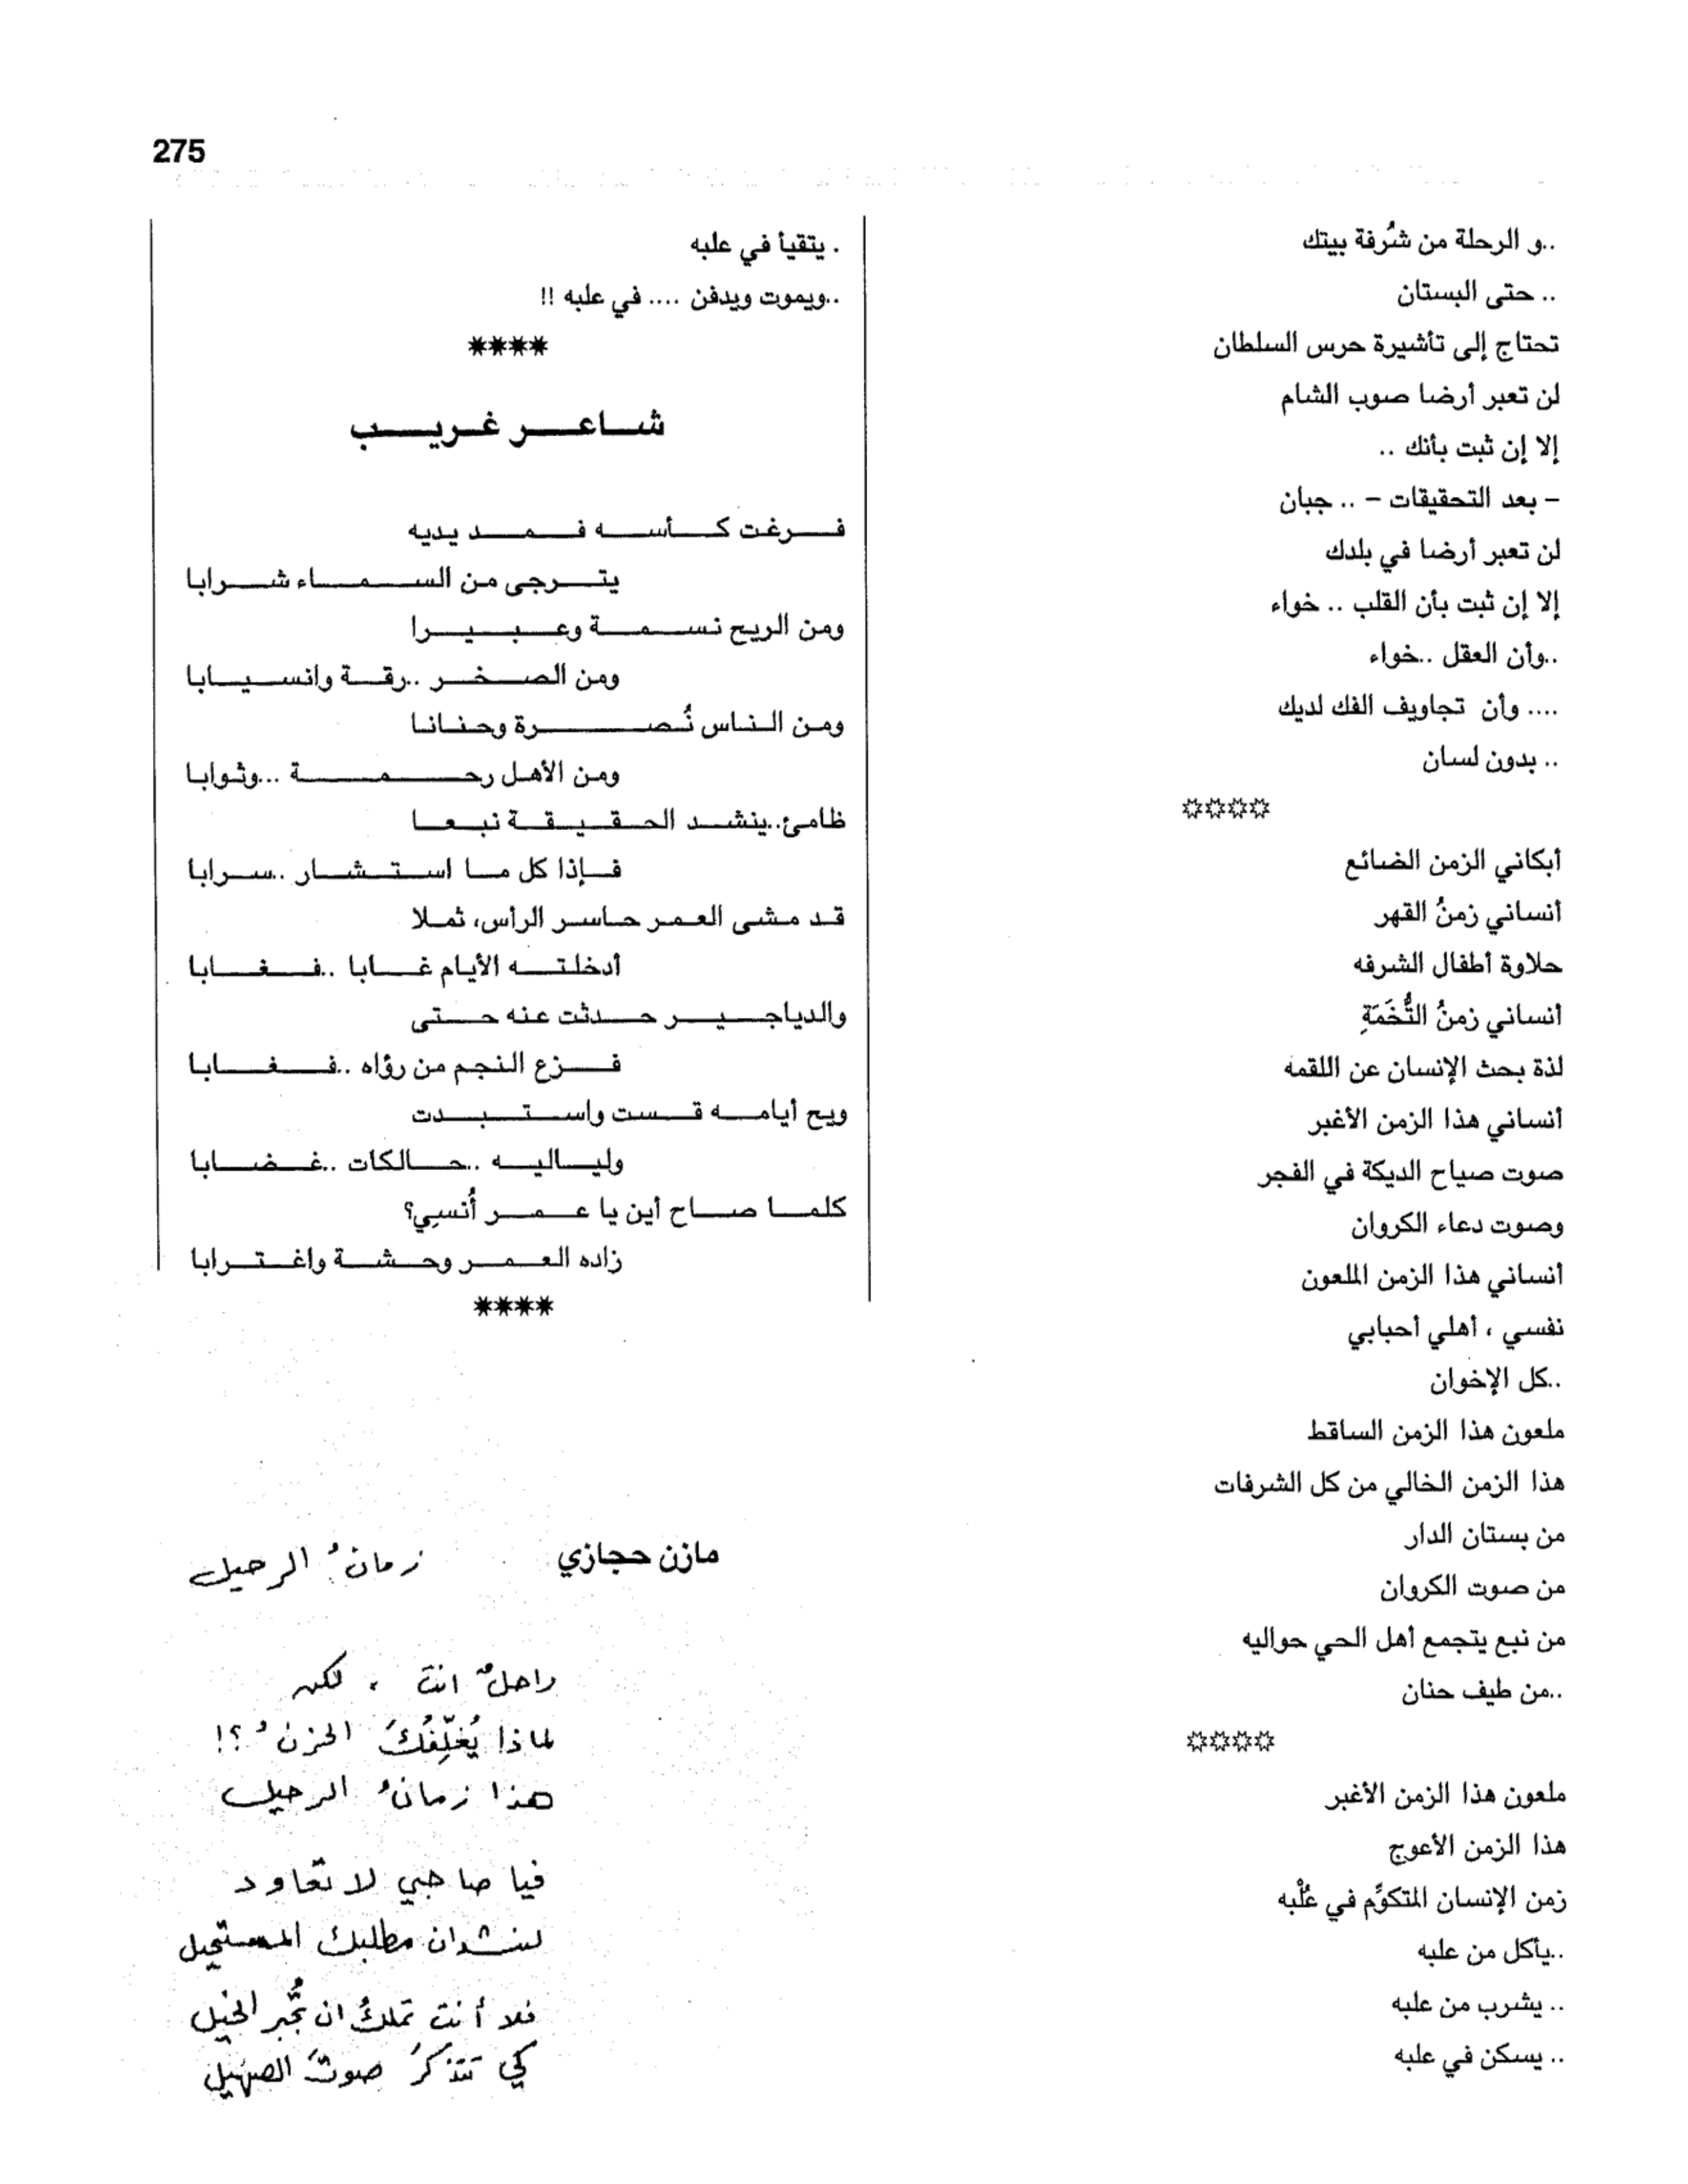 275
..و الرحلة من شُرفة بيتك
.. حتى البستان
تحتاج إلى تأشيرة حرس السلطان
لن تعبر أرضا صوب الشام
إلا إن ثبت بأنك ..
– بعد التحقيقات – .. جبان
لن تعبر أرضا في بلدك
إلا إن ثبت بأن القلب .. خواء
..وأن العقل ..خواء
.... وأن تجاويف الفك لديك
.. بدون لسان
✵✵✵✵
أبكاني الزمن الضائع
أنساني زمنُ القهر
حلاوة أطفال الشرفه
أنساني زمنُ التُّخَمَةِ
لذة بحث الإنسان عن اللقمه
أنساني هذا الزمن الأغبر
صوت صياح الديكة في الفجر
وصوت دعاء الكروان
أنساني هذا الزمن الملعون
نفسي ، أهلي أحبابي
..كل الإخوان
ملعون هذا الزمن الساقط
هذا الزمن الخالي من كل الشرفات
من بستان الدار
من صوت الكروان
من نبع يتجمع أهل الحي حواليه
..من طيف حنان
✵✵✵✵
ملعون هذا الزمن الأغبر
هذا الزمن الأعوج
زمن الإنسان المتكوِّم في عُلْبه
..يأكل من علبه
.. يشرب من علبه
.. يسكن في علبه
. يتقيأ في علبه
..ويموت ويدفن .... في علبه !!
****
شاعر غريب
فرغت كأسه فمد يديه
يترجى من السماء شرابا
ومن الريح نسمة وعبيرا
ومن الصخر ..رقة وانسيابا
ومن الناس نُصرة وحنانا
ومن الأهل رحمة ...وثوابا
ظامئ..ينشد الحقيقة نبعا
فإذا كل ما استشار ..سرابا
قد مشى العمر حاسر الرأس، ثملا
أدخلته الأيام غابا ..فغابا
والدياجير حدثت عنه حتى
فزع النجم من رؤاه ..فغابا
ويح أيامه قست واستبدت
ولياليه ..حالكات ..غضابا
كلما صاح أين يا عمر أُنسِي؟
زاده العمر وحشة واغترابا
****
مازن حجازي زمانُ الرحيل
راحلٌ انت ، لكن
لماذا يُغلِّفُكَ الحزنُ ؟!
هذا زمانُ الرحيل
فيا صاحبي لا تعاود
لنشدان مطلبك المستحيل
فلا أنت تملكُ ان تُجبر الخيل
كي تتذكرَ صوتَ الصهيل